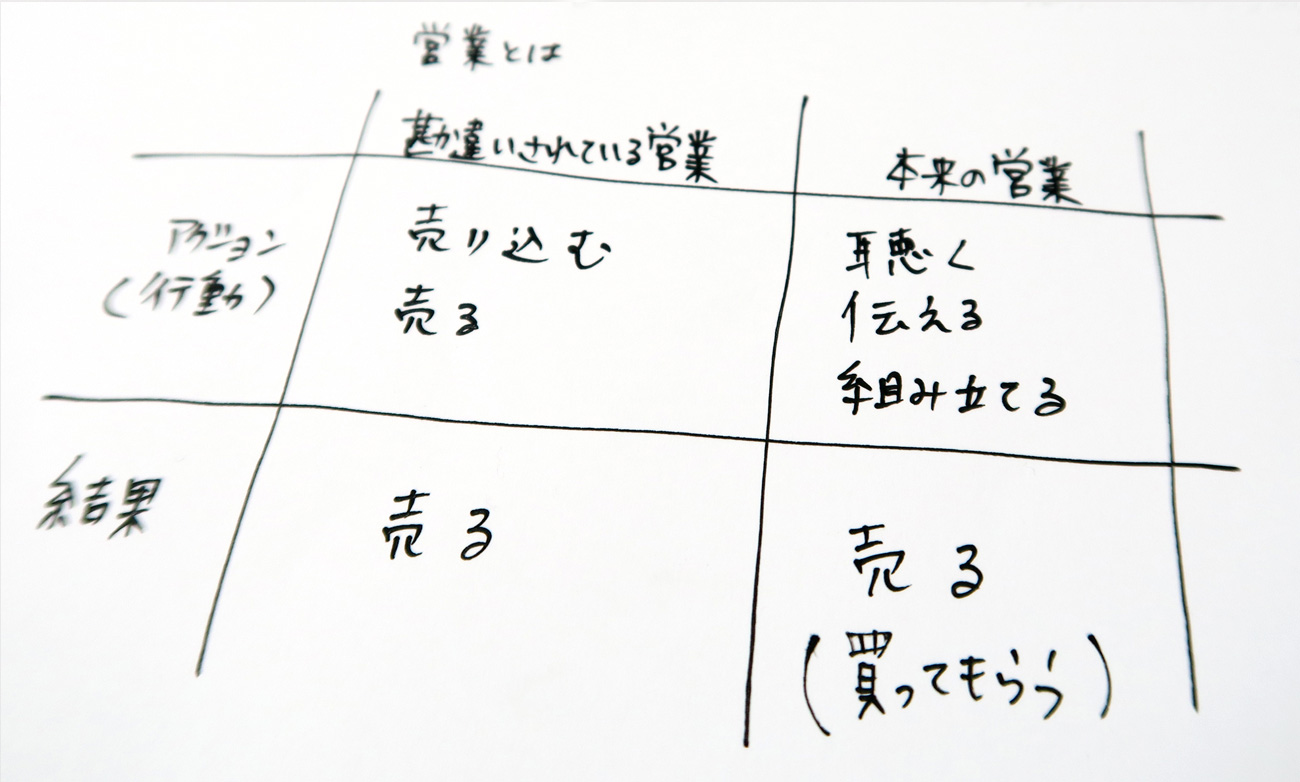 営業とは
勘違いされている営業
本来の営業
アクション
(行動)
売り込む
売る
聴く
伝える
組み立てる
結果
売る
売る
(買ってもらう)